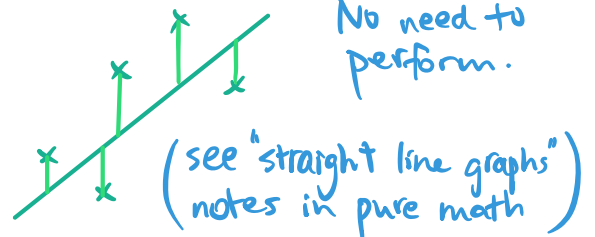 No need to
perform.
(see "straight line graphs"
notes in pure math)